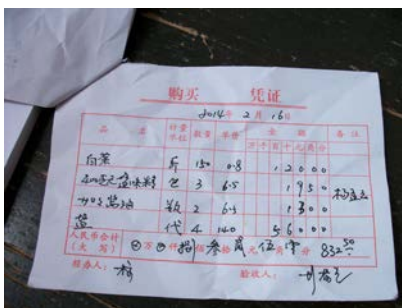 购买 凭证
2014年 2月 16日
品 名 计量单位 数量 单价 金 额 备注
万千百十元角分
白菜 斤 150 0.8 12000
3 6.5 1950
2 6.5 1300
代 4 140 56000
人民币合计(大写) 万 仟 捌佰 叁拾 贰元 伍角 分 832.50
经办人: 验收人: